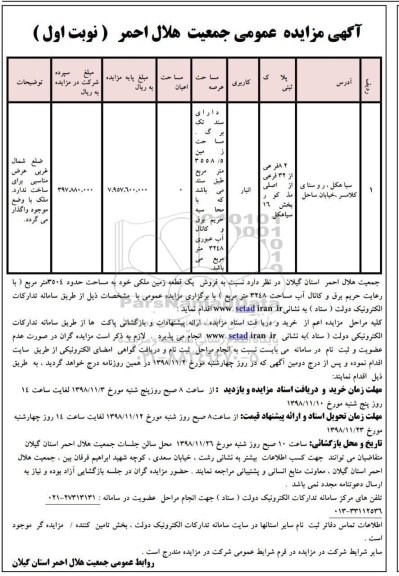 آگهی مزایده عمومی جمعیت هلال احمر ( نوبت اول )
ردیف
آدرس
پلاک ثبتی
کاربری
مساحت عرصه
مساحت اعیان
مبلغ پایه مزایده به ریال
مبلغ سپرده شرکت در مزایده به ریال
توضیحات
۱
سیاهکل ، روستای کلامسر ،خیابان ساحل
۸۲فرعی از ۳۲ فرعی از اصلی مذکور و بخش ۱۶ سیاهکل
انبار
دارای سند تک برگ . مساحت زمین ۳۵۵۸/۵ متر مربع طبق سند می باشد که با محاسبه حریم برق و کانال آب عبوری ۳۲۴۸ متر مربع می باشد.
۰
۷،۹۵۷،۶۰۰،۰۰۰
۳۹۷،۸۸۰،۰۰۰
ضلع شمال غربی عرض مناسبی برای ساخت ندارد. ملک با وضع موجود واگذار می گردد.
جمعیت هلال احمر استان گیلان در نظر دارد نسبت به فروش یک قطعه زمین ملکی خود به مساحت حدود ۳۵۰۴متر مربع ( با
رعایت حریم برق و کانال آب مساحت ۳۲۴۸ متر مربع ) با برگزاری مزایده عمومی با مشخصات ذیل از طریق سامانه تدارکات
الکترونیک دولت ( ستاد ) به نشانی www.setad iran.ir اقدام نمایند .
کلیه مراحل مزایده اعم از خرید و دریافت اسناد مزایده، ارائه پیشنهادات و بازگشائی پاکت ها از طریق سامانه تدارکات
الکترونیکی دولت ( ستاد )به نشانی www. setad iran.ir انجام می پذیرد . لازم به ذکر است مزایده گران در صورت عدم
عضویت و ثبت نام در سامانه می بایست نسبت به انجام مراحل ثبت نام و دریافت گواهی امضای الکترونیکی از طریق سایت
اقدام نموده و پس از درج دومین آگهی که در روز چهارشنبه مورخ ۱۳۹۸/۱۱/۲ در همین روزنامه درج خواهد گردید ، به طریق
ذیل اقدام نمایند:
مهلت زمان خرید و دریافت اسناد مزایده و بازدید : از ساعت ۸ صبح روزپنج شنبه مورخ ۱۳۹۸/۱۱/۳ لغایت ساعت ۱۴
روز پنج شنبه مورخ ۱۳۹۸/۱۱/۱۰
مهلت زمان تحویل اسناد و ارائه پیشنهاد قیمت: از ساعت۸ صبح روز شنبه مورخ ۱۳۹۸/۱۱/۱۲ لغایت ساعت ۱۴ روز چهارشنبه
مورخ ۱۳۹۸/۱۱/۲۳
تاریخ و محل بازگشائی: ساعت ۱۰ صبح روز شنبه مورخ ۱۳۹۸/۱۱/۲۶ محل سالن جلسات جمعیت هلال احمر استان گیلان
متقاضیان می توانند جهت کسب اطلاعات بیشتر به نشانی رشت ، خیابان سعدی ، کوچه شهید ابراهیم فرقان بین ، جمعیت هلال
احمر استان گیلان ، معاونت منابع انسانی و پشتیبانی مراجعه نمایند . حضور مزایده گران در جلسه بازگشایی آزاد بوده و نیاز به
ارسال دعوتنامه مجدد نمی باشد .
تلفن های مرکز سامانه تدارکات الکترونیک دولت ( ستاد ) جهت انجام مراحل عضویت در سامانه : ۲۷۳۱۳۱۳۱-۰۲۱
۰۱۳-۳۳۱۱۲۵۳۶
اطلاعات تماس دفاتر ثبت نام سایر استانها در سایت سامانه تدارکات الکترونیک دولت ، بخش تامین کننده / مزایده گر موجود
است .
سایر شرایط شرکت در مزایده در فرم شرایط عمومی شرکت در مزایده مندرج است .
روابط عمومی جمعیت هلال احمر استان گیلان